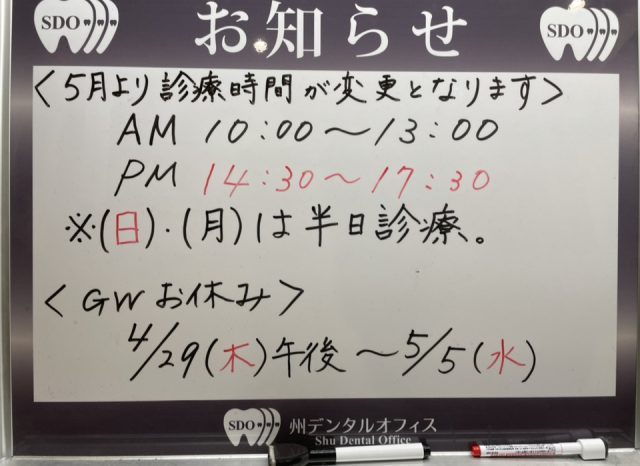 SDO お知らせ SDO
<5月より診療時間が変更となります>
AM 10:00〜13:00
PM 14:30〜17:30
※(日)・(月)は半日診療。
<GWお休み>
4/29(木)午後〜5/5(水)
SDO 州デンタルオフィス
Shu Dental Office